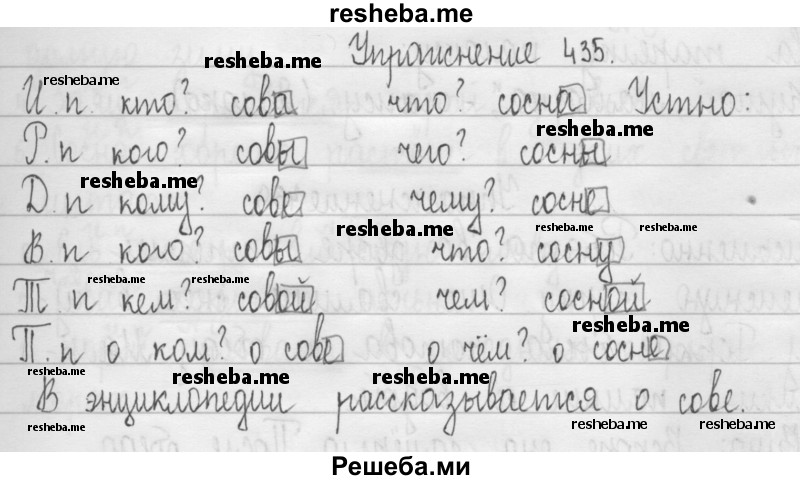 resheba.me
Упражнение 435.
resheba.me
resheba.me
И.п. кто? сова что? сосна Устно:
resheba.me
Р.п кого? совы чего? сосны
resheba.me
Д.п кому? сове чему? сосне
resheba.me resheba.me resheba.me
В.п кого? совы что? сосну
resheba.me resheba.me
Т.п кем? совой чем? сосной
resheba.me
П.п о ком? о сове о чём? о сосне
resheba.me resheba.me
В энциклопедии рассказывается о сове.
resheba.me resheba.me resheba.me
Решеба.ми